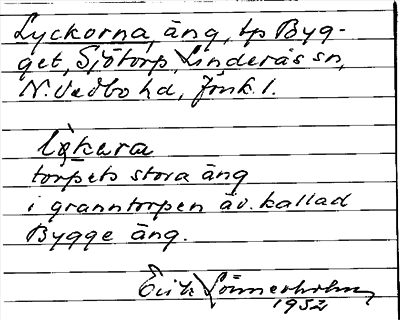 Lyckorna, äng, tp Byg-
get, Sjötorp, Linderås sn,
N. Vedbo hd, Jönk. l.
torpets stora äng
i granntorpen äv. kallad
Bygge äng.
Erik Lönnerholm
1952